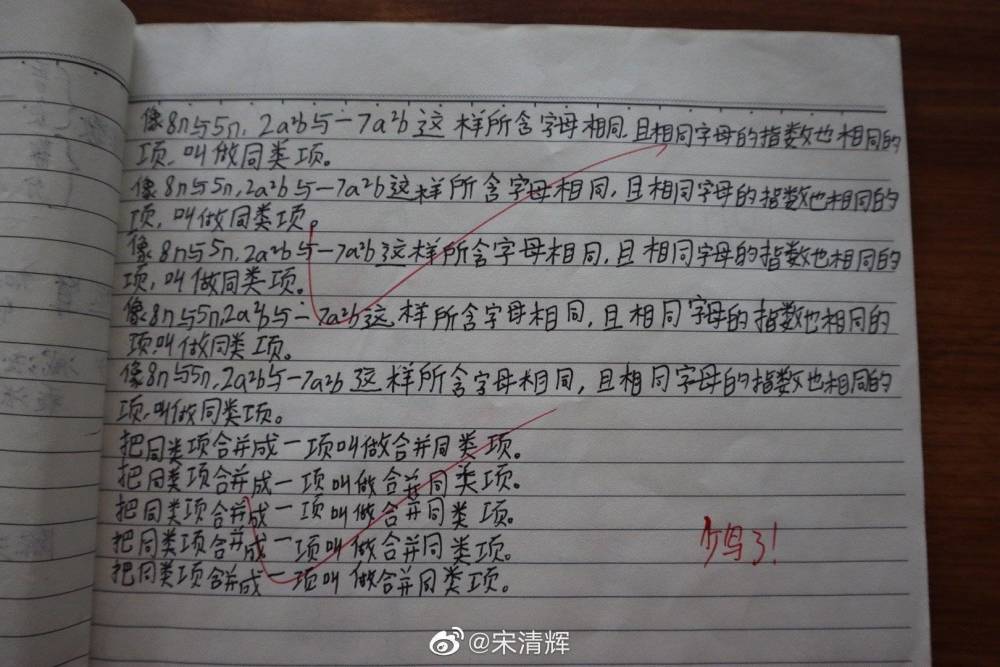 像8n与5n,2a²b与-7a²b这样所含字母相同,且相同字母的指数也相同的
项,叫做同类项。
像8n与5n,2a²b与-7a²b这样所含字母相同,且相同字母的指数也相同的
项,叫做同类项。
像8n与5n,2a²b与-7a²b这样所含字母相同,且相同字母的指数也相同的
项,叫做同类项。
像8n与5n,2a²b与-7a²b这样所含字母相同,且相同字母的指数也相同的
项,叫做同类项。
像8n与5n,2a²b与-7a²b这样所含字母相同,且相同字母的指数也相同的
项,叫做同类项。
把同类项合并成一项叫做合并同类项。
把同类项合并成一项叫做合并同类项。
把同类项合并成一项叫做合并同类项。
把同类项合并成一项叫做合并同类项。
把同类项合并成一项叫做合并同类项。
少写了!
@宋清辉